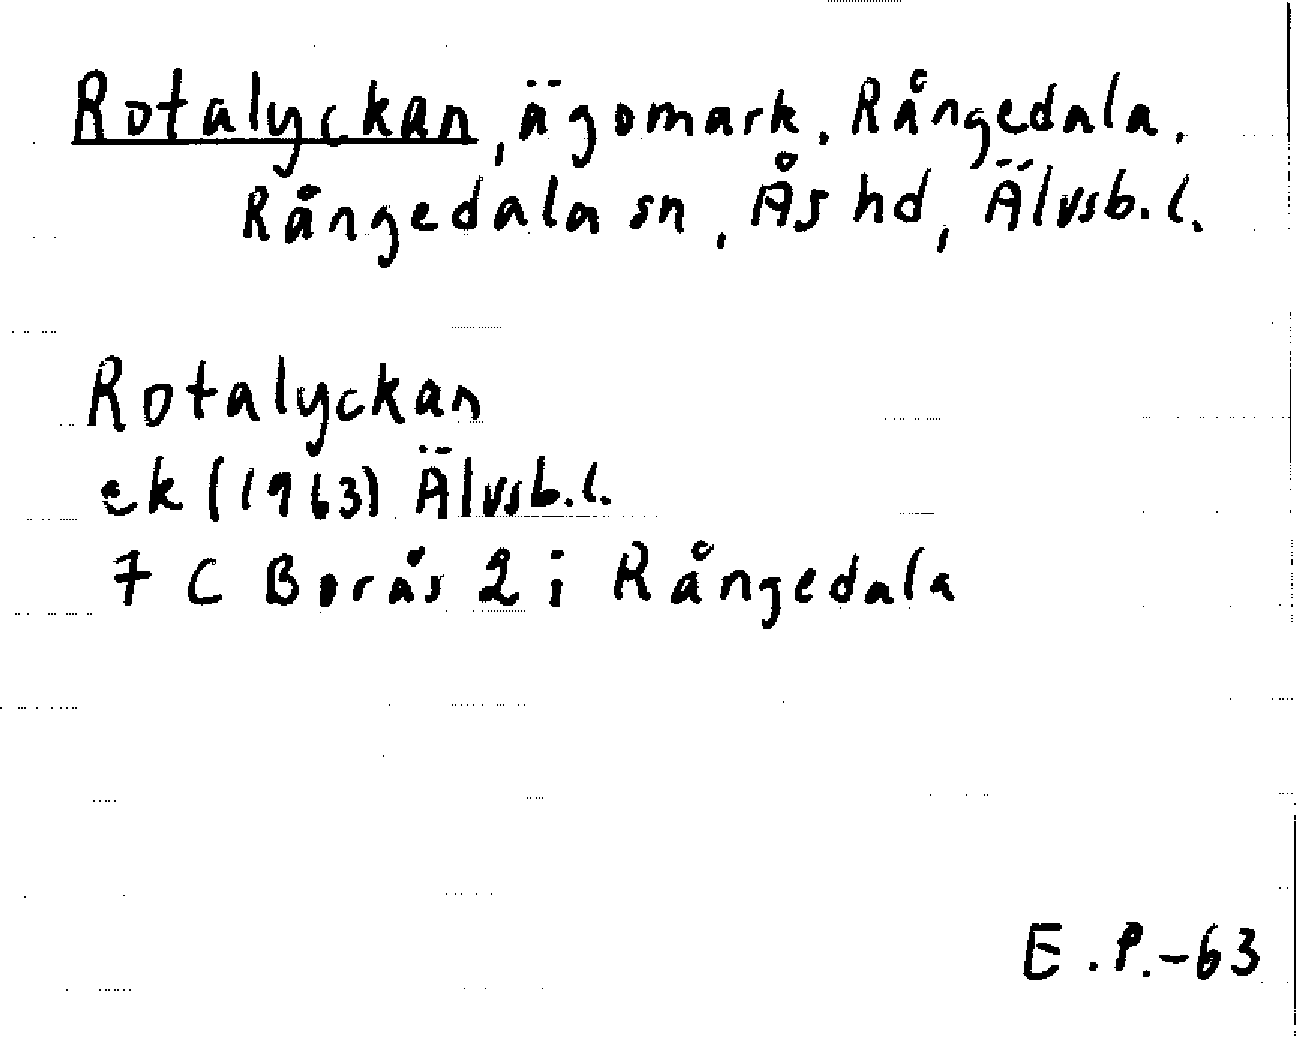 Rotalyckan, ägomark. Rångedala.
Rångedala sn, Ås hd, Älvsb.l.
Rotalyckan
ek (1963) Älvsb.l.
7 C Borås 2 i Rångedala
E.P.-63